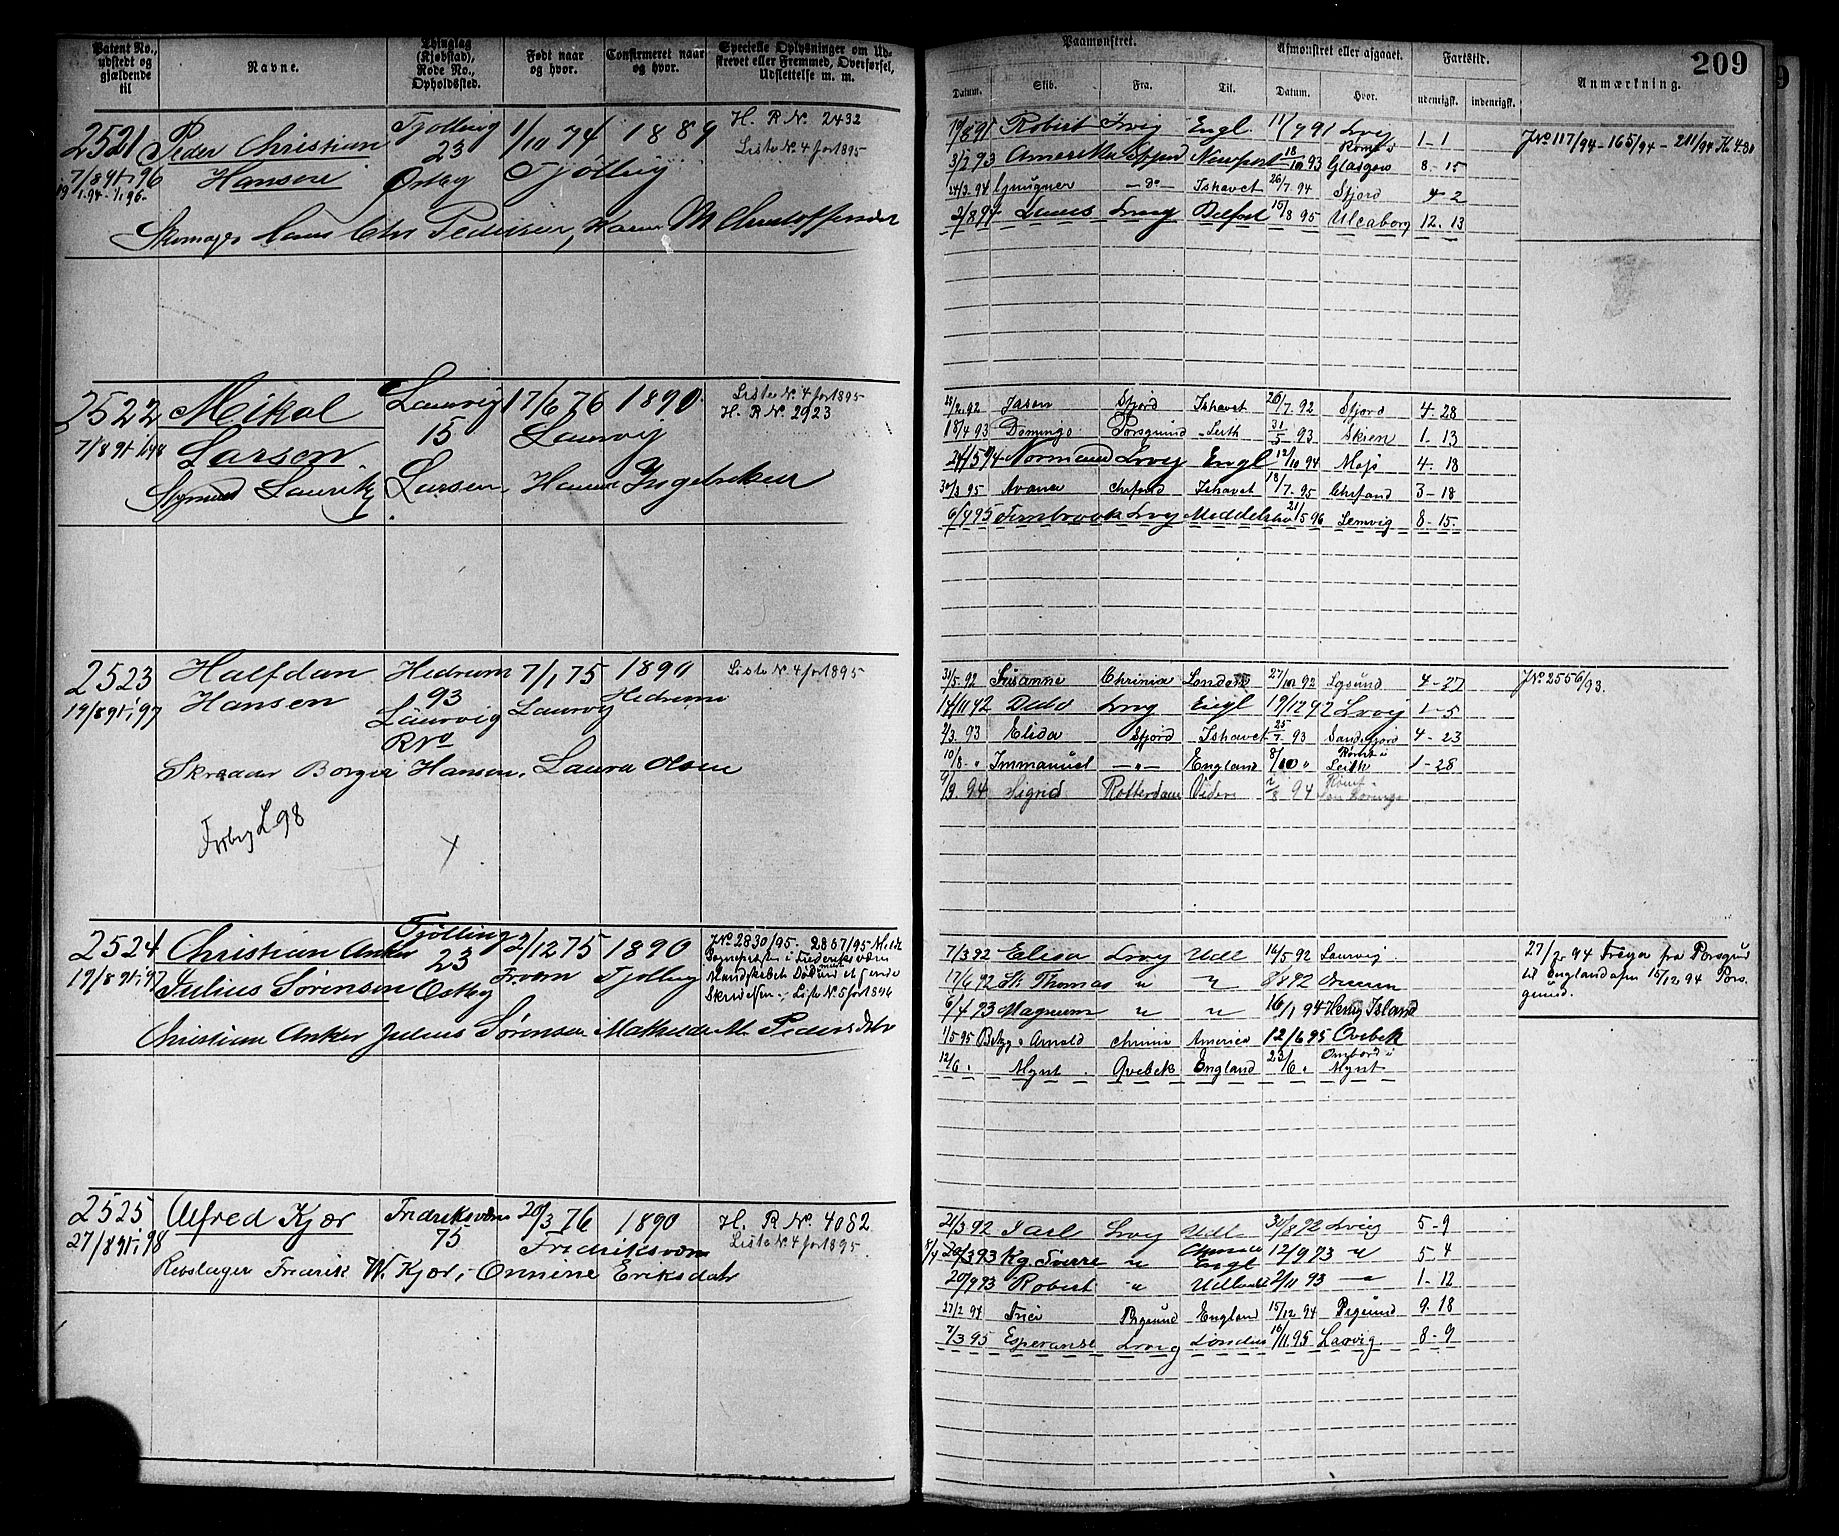 209
Patent No., udstedt og gjældende til
Navne.
Thinglag (Kjøbstad), Rode No., Opholdssted.
Født naar og hvor.
Confirmeret naar og hvor.
Specielle Oplysninger om Udskrevet eller Fremmed, Overførsel, Udslettelse m. m.
Paamønstret.
Afmønstret eller afgaaet.
Fartstid.
Anmærkning.
Datum. Skib. Fra. Til. Datum. Hvor. udenrigsk. indenrigsk.
2521 Peder Christian Tjølling 1/10 74 1889 H. R No 2432
7/8 91-1/1 96 Hansen 23 Tjølling Liste No. 4 for 1895
19/1 94-1/1 96- Østby
Skomager Hans Chr Pedersen, Karen M Christoffersdat
19/8 91 Robert Lvig Engl. 11/9 91 Lvig 1-1
3/2 93 Amerika Sfjord Newport 18/10 93 Rømt i Glasgow 8-15
24/3 94 — do — Ishavet 26/7 94 Sfjord 4-2
2/8 94 Lvig Belfast 15/8 95 Uleaborg 12.13
JNo 117/94 - 165/94 - 211/94
2522 Mikal Laurvig 17/6 76 1890 Liste No. 4 for 1895
7/8 91-1/1 98 Larsen 15 Laurvig H. R No 2923
Larsen, Hanna Ingebretsen
23/2 92 Jason Sfjord Ishavet 26/7 92 Sfjord 4-28
18/4 93 Domingo Porsgrund Leith 31/5 93 Skien 1-13
24/5 94 Normand Lvig Engl 12/10 94 Moss 4-18
30/3 95 Avance Chrsand Ishavet 18/7 95 Chrsand 3-18
6/9 95 Fernbrook Lvig Middelsbro 21/5 96 Lemvig 8-15
2523 Halfdan Hedrum 7/1 75 1890 Liste No. 4 for 1895
19/8 91-1/1 97 Hansen 93 Laurvig Hedrum
Laurvig
RNo
Skræder Borger Hansen, Laura Olsen
L 98
30/5 92 Susanne Chrinia London 27/10 92 Lysund 4-27
14/11 92 Dido Lvig Engl 19/12 92 Lvig 1-5
2/3 93 Elida Sfjord Ishavet 25/7 93 Sandefjord 4-23
10/8 " Immanuel — " — England 8/10 " Rømt i Leith 1-28
9/3 94 Sigrid Rotterdam Videre 2/8 94 Rømt San Domingo
JNo 2556/93.
2524 Christian Anker Tjølling 2/12 75 1890 JNo 2830/95. 2867/95
19/8 91-1/1 97 Julius Sørensen 23 Frværn Tjølling Sognepræsten i Frederiksværn
Østby Skrivelsen. Liste No. 5 for 1896
Christian Anker Julius Sørensen Mathilde M. Pedersdatr
7/3 92 Elisa Lvig Udl 16/5 92 Laurvig
17/6 92 St Thomas " " 8/8 92
6/4 93 Magnum " " 16/1 94 Heng Island
1/5 95 Betzy & Arnold Chrinia America 12/6 95 Qvebek
12/6 " Mynt Qvebek England 23/6 " Ombord i Mynt
27/2 94 Freya fra Porsgrund
til England afm 15/12 94 Porsgrund.
2525 Alfred Kjær Fredriksværn 20/3 76 1890 H. R No. 4082
27/8 91-1/1 98 75 Fredriksværn Liste No. 4 for 1895
Rebslager Fredrik W. Kjær, Omine Eriksdatr
21/3 92 Jarl Lvig Udl 30/8 92 Lvig 5-9
20/3 93 Kg. Sverre " Engl 12/9 93 " 5 4
20/9 93 Robert " Udlandet 2/11 93 — " 1-12
27/2 94 Freia Prgrund England 15/12 94 Prgrund 9.18
7/3 95 Esperanse Lrvig London 16/11 95 Larvig. 8-9